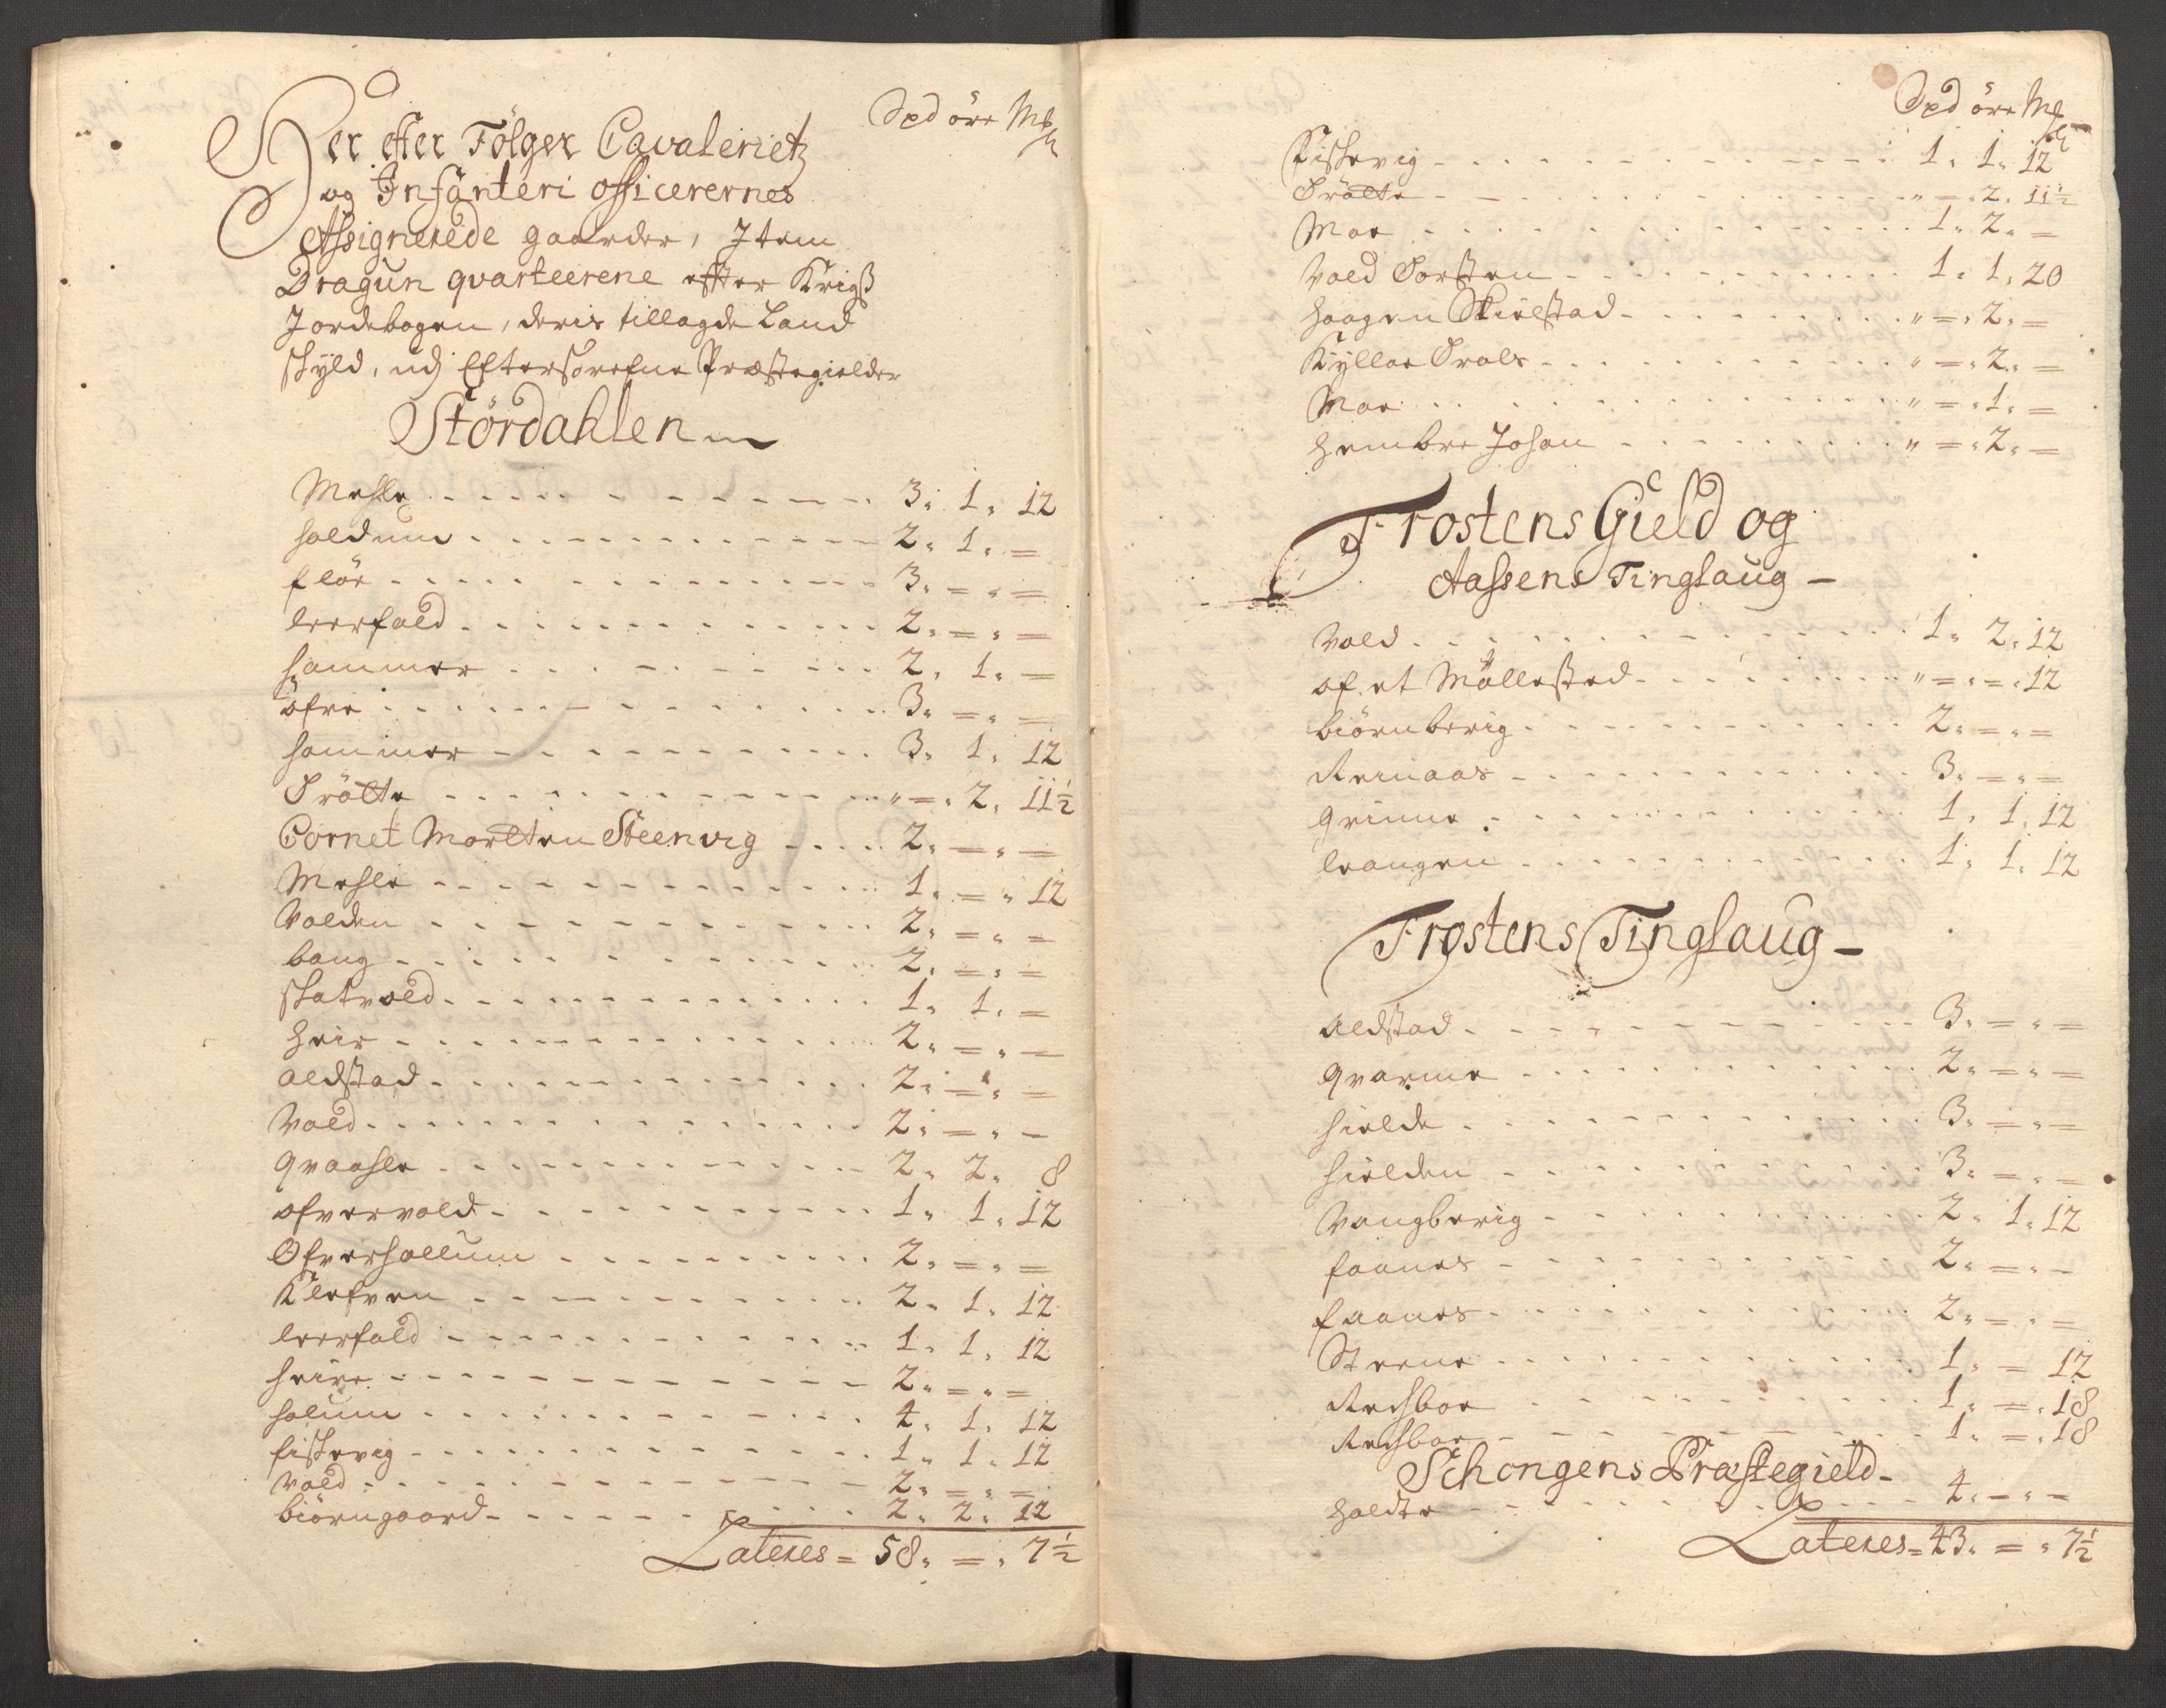 Spd öre Mk
Her efter Fölger Cavalerietz
og Infanteri officerernes
Assignerede gaarder, Item
Dragun quarteerene effter Krigß
Jordebogen, deris tillagde Land
skyld, udj Eftersörefne Præstegielder
Stördahlen
Mehle 3. 1. 12
haldum 2. 1. =
flör 3. = . =
leerfald 2. = . =
hammer 2. 1. =
öfre 3. = . =
hammer 3. 1. 12
Trötte " = . 2. 11½
Cornet Morten Steenvig 2. = . =
Mehle 1. = . 12
Valden 2. = . =
bang 2. = . =
skatvold 1. 1. =
heir 2. = . =
aldstad 2. = . =
Vold 2. = . =
qvaahle 2. 2. 8
ofvervold 1. 1. 12
Ofverhollum 2. = . =
Klefven 2. 1. 12
leerfald 1. 1. 12
heire 2. = . =
holum 4. 1. 12
fiskvig 1. 1. 12
Vold 2. = . =
biörngaard 2. 2. 12
Lateres = 58. = . 7½
Spd öre Mk
Fiskvig 1. 1. 12
Trötte " = . 2. 11½
Moe 1. 2. =
Vold Torsten 1. 1. 20
haagen Skielstad " = . 2. =
Kylloe Trols " = . 2. =
Moe " = . 1. =
hembre Johan " = . 2. =
Frostens Gield og
Aassens Tinglaug
Vold 1. 2. 12
af et Möllested " = . = . 12
biörnberig 2. = . =
Reinaas 3. = . =
grinne 1. 1. 12
leangen 1. 1. 12
Frostens Tinglaug
aldstad 3. = . =
qvarme 2. = . =
hielde 3. = . =
hielden 3. = . =
Vangberig 2. 1. 12
faanes 2. = . =
faanes 2. = . =
Steene 1. = 12
Reisboe 1. = . 18
Reisboe 1. = . 18
Schongens Præstegield
holdte 4. = . =
Lateres = 43. = . 7½